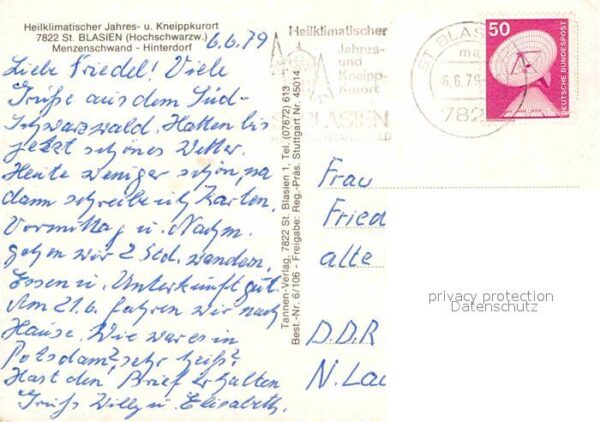 Heilklimatischer Jahres- u. Kneippkurort
7822 St. BLASIEN (Hochschwarzw.)
Menzenschwand - Hinterdorf
6.6.79
Liebe Friedel! Viele
Grüße aus dem Süd-
schwarzwald. Hatten bis
jetzt schönes Wetter.
Heute weniger schön, na
dann schreibe ich Karten.
Vormittag u. Nachm.
gehen wir 2 Std. wandern.
Essen u. Unterkunft gut.
Am 21.6. fahren wir nach
Hause. Wie war es in
Potsdam?, sehr heiß?
Hast den Brief erhalten
Gruß Willy u. Elisabeth.
Tannen-Verlag, 7822 St. Blasien 1, Tel. (07672) 613
Best.-Nr. 6/106 - Freigabe: Reg.-Präs. Stuttgart Nr. 45014
Heilklimatischer
Jahres-
und
Kneipp-
Kurort
ST. BLASIEN
ST. BLASIEN
ma
6.6.79
782
50
DEUTSCHE BUNDESPOST
Frau
Fried
alte
D.D.R
N. Lau
privacy protection
Datenschutz